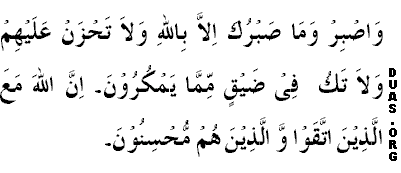 وَاصْبِرْ وَمَا صَبْرُكَ اِلاَّ بِاللهِ وَلاَ تَحْزَنْ عَلَيْهِمْ
وَلاَ تَكُ فِىْ ضَيْقٍ مِّمَّا يَمْكُرُوْنَ۔ اِنَّ اللهَ مَعَ
الَّذِيْنَ اتَّقَوْا وَّ الَّذِيْنَ هُمْ مُّحْسِنُوْنَ۔
DUAS.ORG